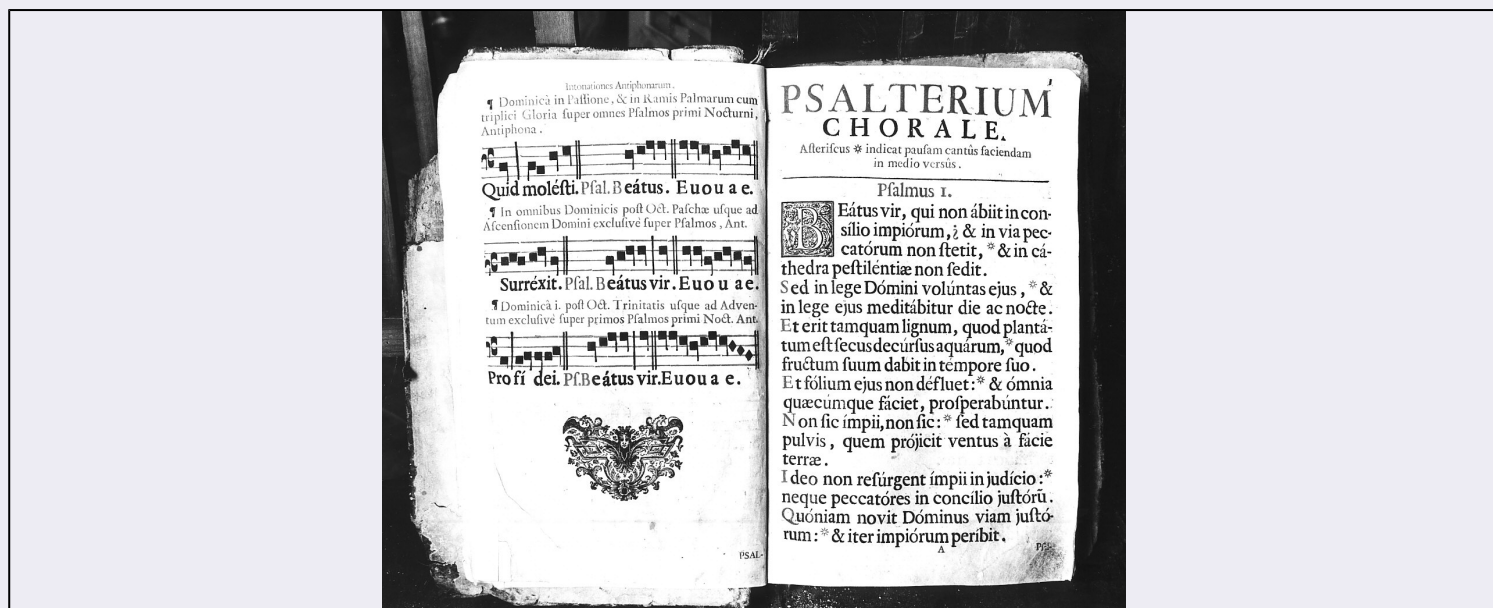 Intonationes Antiphonarum.
¶ Dominicâ in Paſſione, & in Ramis Palmarum cum
triplici Gloria ſuper omnes Pſalmos primi Nocturni,
Antiphona.
Quid moléſti. Pſal. Beátus. Euouae.
¶ In omnibus Dominicis poſt Oct. Paſchæ uſque ad
Aſcenſionem Domini excluſivé ſuper Pſalmos, Ant.
Surréxit. Pſal. Beátus vir. Euouae.
¶ Dominicâ i. poſt Oct. Trinitatis uſque ad Adven-
tum excluſivé ſuper primos Pſalmos primi Noct. Ant.
Pro fí dei. Pſ. Beátus vir. Euouae.
PSAL-
1
PSALTERIUM
CHORALE.
Aſteriſcus * indicat pauſam cantûs faciendam
in medio verſûs.
Pſalmus 1.
BEátus vir, qui non ábiit in con-
sílio impiórum, ¿ & in via pec-
catórum non ſtetit, * & in cá-
thedra peſtiléntiæ non ſedit.
Sed in lege Dómini volúntas ejus, * &
in lege ejus meditábitur die ac nocte.
Et erit tamquam lignum, quod plantá-
tum eſt ſecus decúrſus aquárum, * quod
fructum ſuum dabit in témpore ſuo.
Et fólium ejus non défluet: * & ómnia
quæcúmque fáciet, proſperabúntur.
Non ſic ímpii, non ſic: * ſed tamquam
pulvis, quem prójicit ventus à fácie
terræ.
Ideo non reſúrgent ímpii in judício: *
neque peccatóres in concílio juſtórũ.
Quóniam novit Dóminus viam juſtó-
rum: * & iter impiórum períbit.
A
Pſal-